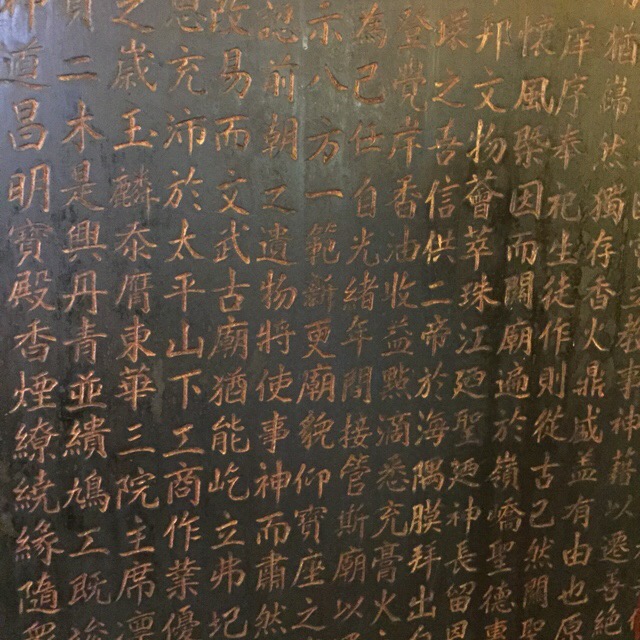 猶歸然獨存香火鼎盛蓋有由也
庠序奉祀生徒作則從古已然
懷風聚因而開廟適於嶺嶠聖德
邦文物薈萃珠江迴聖廸神長留
踩之吾信供二帝於海隅膜拜出
登覺岸香油收益點滴悉充膏火
為己仕自光緒年間接管斯廟以
示八方一範辦更廟貌仰寶座之
認前朝之遺物將使事神而肅然
改易而文武古廟猶能屹立弗圮
息充沛於太平山下工商作業優
之歲玉麟泰膺東華三院主席
二木是興丹青並繢鳩工既竣
神道昌明寶殿香煙繚繞緣隨